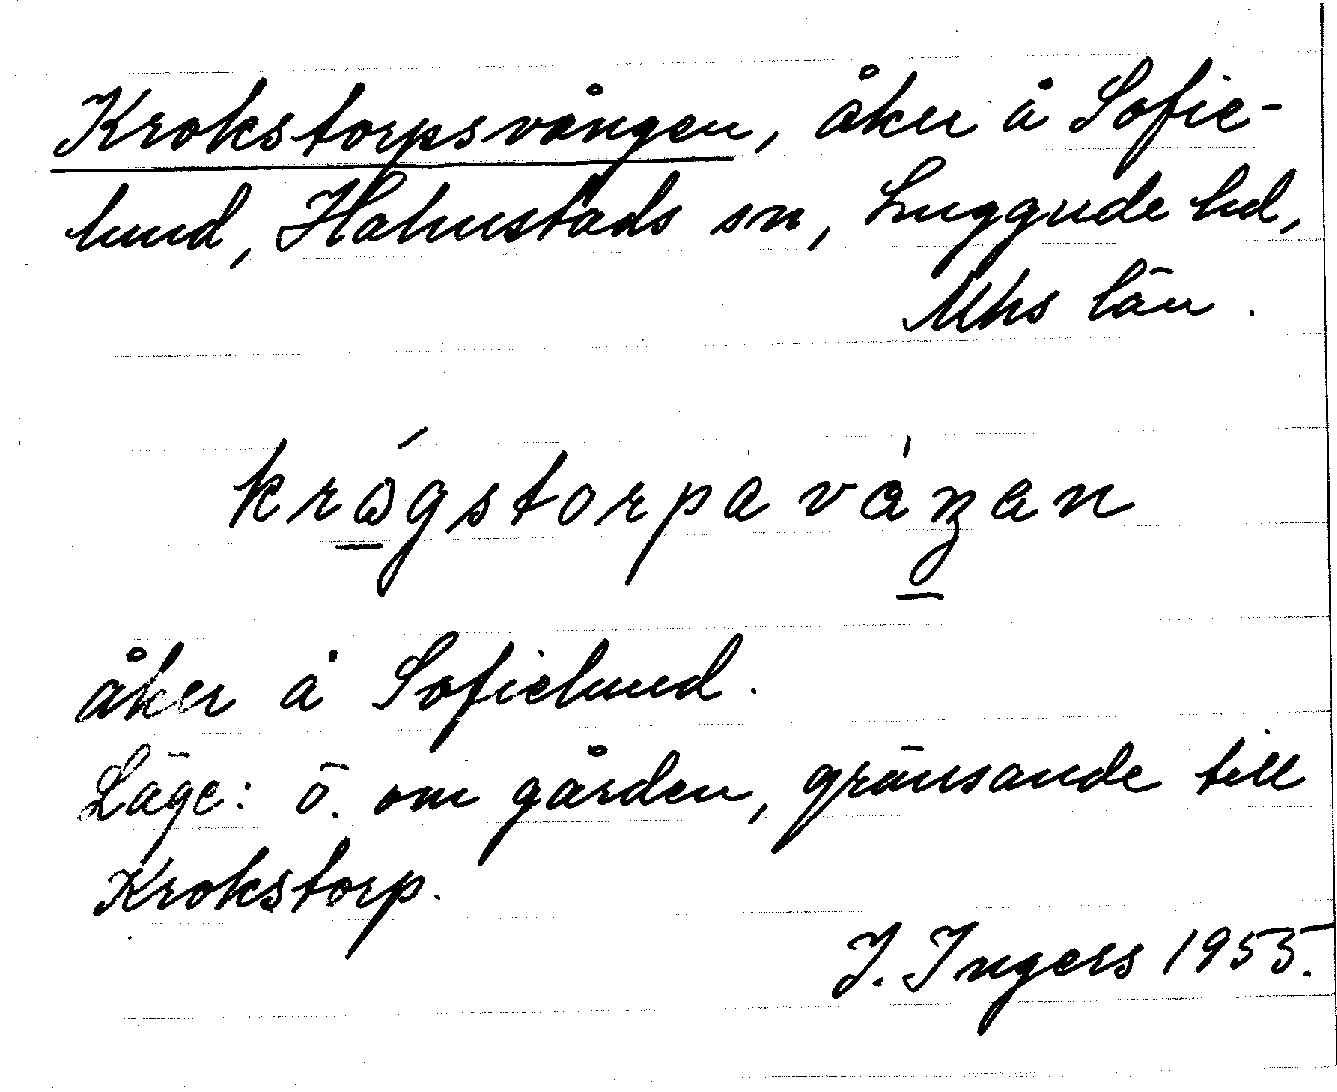 Krokstorpsvången, åker å Sofie-
lund, Halmstads sn, Luggude hd,
Mhs län.
krǫ́gstorpavaŋ̱an
åker å Sofielund.
Läge: ö. om gården, gränsande till
Krokstorp.
I. Ingers 1955.